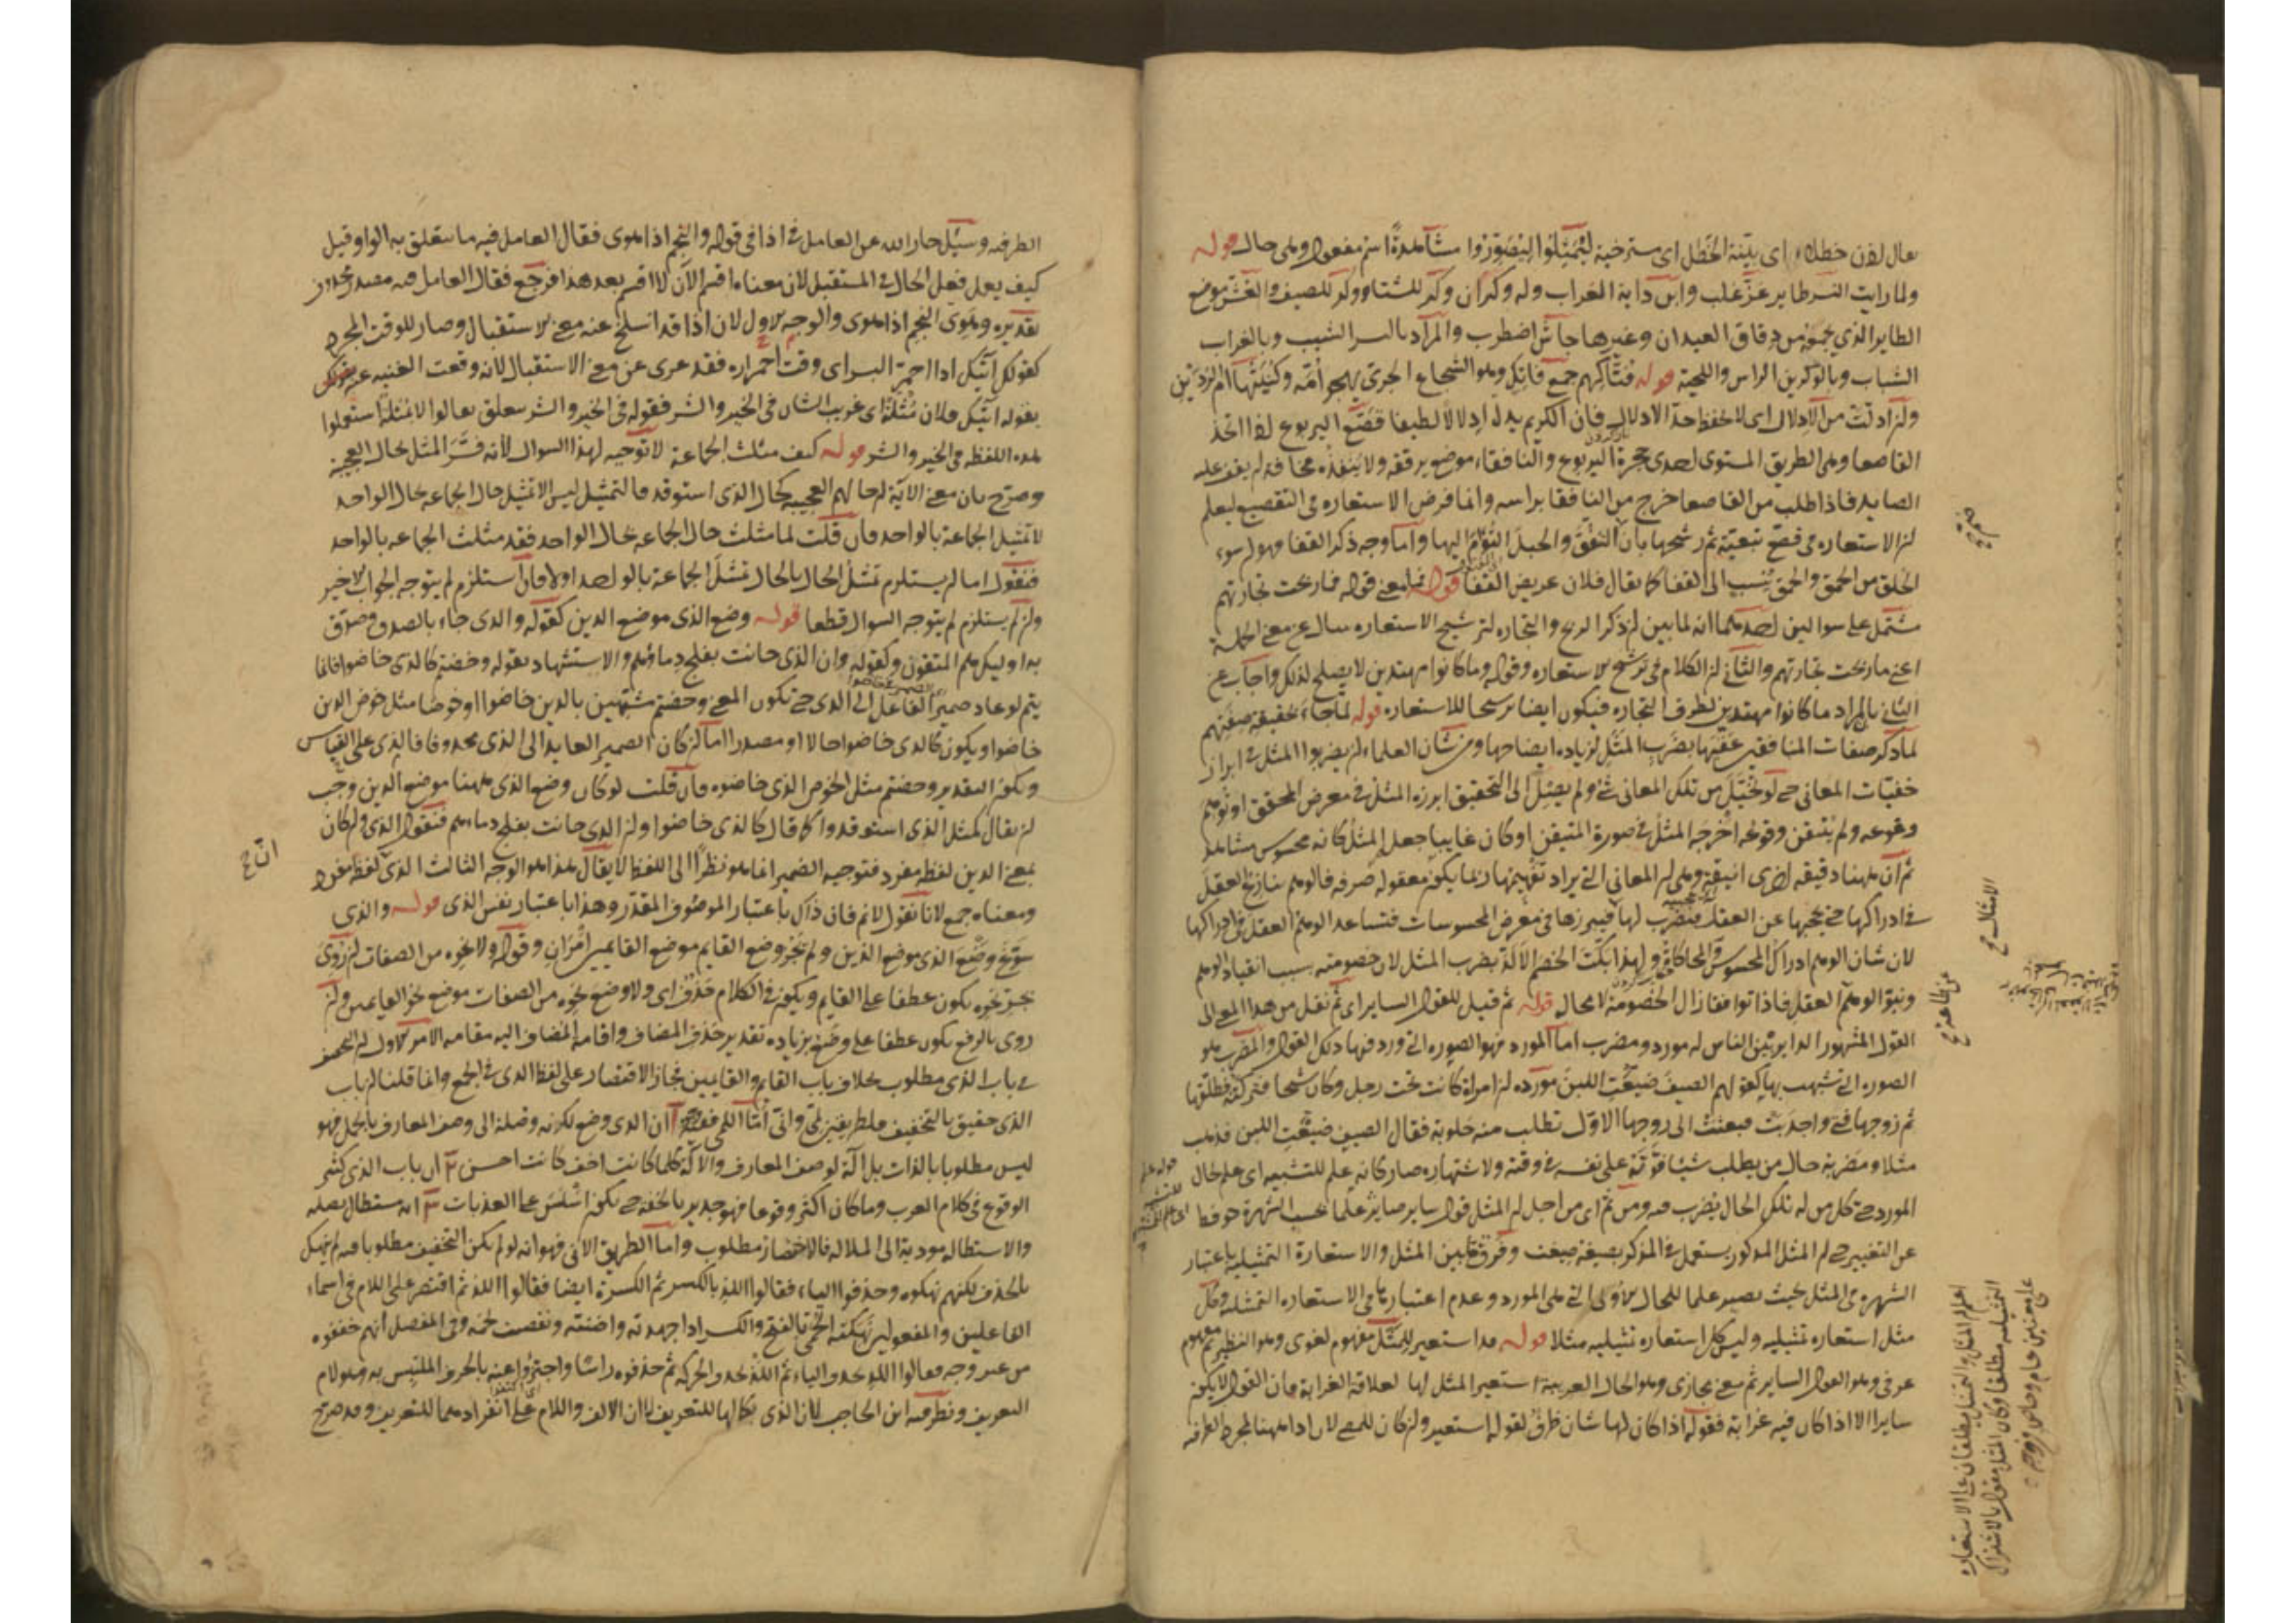 يقال اذن خطلاء اى بيّنة الخطل اى مسترخية ليتمثلوا ليتصوّروا مشاهدة اسم مفعول وهى حال قوله
ولما رايت النسر طاير عزّ غلب وابن داية الغراب وله وكران وكر للشتاء ووكر للصيف والعش موضع
الطاير الذي يجمعه من دقاق العيدان وغيرها جاش اضطرب والمراد بالنسر الشيب وبالغراب
الشباب وبالوكرين الراس واللحية قوله فتاكهم جمع فاتك وهو الشجاع الجرى يهجو امّه وكنيتها ام الردين
ولزادلت من الادلال اى لا تحفظ حدّ الادلال فان الكريم يدل ادلالا لطيفا قصّع اليربوع اذا اتخذ
القاصعا وهى الطريق المستوى احدى جحرة اليربوع والنافقاء موضع يرققه ولا ينفذه مخافة لم يقف عليه
الصايد فاذا طلب من القاصعا خرج من النافقا براسه وانما فرض الاستعاره فى التقصيع ليعلم
لن الاستعاره فى قصّع تبعيّة ثم رشحها بان التنفّق والحبل التؤام اليها واما وجه ذكر القفا فهو لن سوء
الخلق من الحمق والحمق ينسب الى القفا كما يقال فلان عريض القفا قوله فما معنى قوله فما ربحت تجارتهم
مشتمل على سوالين احدهما انه لما بين لن ذكر الربح والتجاره لترشيح الاستعاره سال عن معنى الجملة
اعنى ما ربحت تجارتهم والثانى لن الكلام فى ترشيح الاستعاره وقوله وما كانوا مهتدين لا يصلح لذلك واجاب عن
الثانى بان المراد ما كانوا مهتدين لطرف التجاره فيكون ايضا ترشيحا للاستعاره قوله لما جاء بحقيقة صفتهم
لما ذكر صفات المنافقين عقبها بضرب المثل لزياده ايضاحها ومن شان العلماء لن يضربوا المثل فى ابراز
خفيّات المعانى حتى لو تخيّل من تلك المعانى شى ولم يصل الى التحقيق ابرزه المثل فى معرض المحقق او توهم
وقوعه ولم يتيقن وقوعه اخرجه المثل فى صورة المتيقن او كان غايبا جعل المثل كانه محسوس مشاهد
ثم ان ههنا دقيقه اخرى انيقة وهى لن المعانى التى يراد تفهيمها ربما يكون معقوله صرفه فالوهم ينازع العقل
فى ادراكها حتى يحجبها عن العقل فيضرب لها فيبرزها فى معرض المحسوسات فتساعد الوهم العقل فى ادراكها
لان شان الوهم ادراك المحسوس والمحاكاة ولهذا يبكّت الخصم الالدّ بضرب المثل لان خصومته بسبب انقياد الوهم
ونبوّ الوهم العقل فاذا توافقا زال الخصومة لا محال قوله ثم قيل للقول الساير اى ثم نقل من هذا المعنى الى
القول المشهور الداير بين الناس له مورد ومضرب اما المورد فهو الصوره التى ورد فيها ذلك القول والمضرب هو
الصوره التى تشبه بها كقولهم الصيف ضيعت اللبن مورده لن امراة كانت تحت رجل وكان شيخا فتركته فطلقها
ثم زوجها فتى واجدبت فبعثت الى زوجها الاوّل تطلب منه حلوبة فقال الصيف ضيّعت اللبن فذهب
مثلا ومضربه حال من يطلب شيئا فوّته على نفسه فى وقته ولاشتهاره صار كانه علم للتشبيه اى علم لحال
المورد حتى كل من له تلك الحال يضرب فيه ومن ثم اى من اجل لن المثل قول ساير صاير علما بحسب الشهرة حوفظ
عن التغيير حتى لن المثل المذكور يستعمل فى المذكر بصيغة ضيعت وفرق بين المثل والاستعارة التمثيلية باعتبار
الشهره فى المثل بحيث يصير علما للحال الاولى التى هى المورد وعدم اعتبارها فى الاستعاره التمثيليه وكل
مثل استعاره تمثيليه وليس كل استعاره تمثيليه مثلا قوله قد استعير للمثل مفهوم لغوى وهو النظير ثم مفهوم
عرفى وهو القول الساير ثم معنى مجازى وهو الحال العريبة استعير المثل لها لعلاقة الغرابة فان القول لا يكون
سايرا الا اذا كان فيه غرابة فقوله اذا كان لها شان ظرف لقوله استعير ولن كان للمضى لان اذا ههنا لمجرد الظرفيه
خمرة
الامثال صح
عن طاعته صح
اعلم ان المثل والتمثيل يطلقان على الاستعاره
التمثيليه مطلقا وكان المثل مقول بالاشتراك
على معنيين عام وخاص
الظرفيه وسئل جار الله عن العامل فى اذا فى قوله والنجم اذا هوى فقال العامل فيه ما يتعلق به الواو فقيل
كيف يعمل فعل الحال فى المستقبل لان معناه اقسم الآن لا اقسم بعد هذا فرجع فقال العامل فيه مصدر محذوف
تقديره وهوى النجم اذا هوى والوجه الاول لان اذا قد انسلخ عنه معنى الاستقبال وصار للوقت المجرد
كقولك آتيك اذا احمرّ البسر اى وقت احمراره فقد عرى عن معنى الاستقبال لانه وقعت الغنيه عنه بقولك
بقوله آتيك فلان مثلة اى غريب الشان فى الخير والشر فقوله فى الخير والشر متعلق بقالوا لا بمثلة استعملوا
هذه اللفظه فى الخير والشر قوله كيف مثلت الجماعة لا توجيه لهذا السوال لانه فسّر المثل بحال العجيبة
وصرّح بان معنى الآية لن حالهم العجيبه كحال الذى استوقد فالتمثيل ليس الا تمثيل حال الجماعه بحال الواحد
لا تمثيل الجماعة بالواحد فان قلت لما مثلت حال الجماعه بحال الواحد فقد مثلت الجماعه بالواحد
فنقول اما لن يستلزم تمثيل الحال بالحال تمثيل الجماعة بالواحد اولا فان استلزم لم يتوجه الجواب الاخير
ولن لم يستلزم لم يتوجه السوال قطعا قوله وضع الذى موضع الذين كقوله والذى جاء بالصدق وصدّق
به اوليك هم المتقون وكقوله وان الذى حانت بفلج دماؤهم والاستشهاد بقوله وخضتم كالذى خاضوا فانما
يتم لو عاد ضمير الفاعل الى الذى حتى يكون المعنى وخضتم مشبّهين بالذين خاضوا او خوضا مثل خوض الذين
خاضوا ويكون كالذى خاضوا حالا او مصدرا اما لن كان الضمير العايد الى الذى محذوفا فالذى على القياس
ويكون التقدير وخضتم مثل الخوض الذى خاضوه فان قلت لو كان وضع الذى ههنا موضع الذين وجب
لن يقال كمثل الذى استوقدوا كما قال كالذى خاضوا ولن الذى حانت بفلج دماءهم فنقول الذى ولن كان
بمعنى الذين لفظه مفرد فتوحيد الضمير انما هو نظرا الى اللفظ لا يقال هذا هو الوجه الثالث الذى لفظه مفرد
ومعناه جمع لانا نقول لا نم فان ذاك باعتبار الموصوف المقدر وهذا باعتبار نفس الذى قوله والذى
سوّغ وضع الذى موضع الذين ولم يجز وضع القايم موضع القايمين امران وقوله ولا نحوه من الصفات لن روى
بجرّ نحوه يكون عطفا على القايم ويكون فى الكلام حذف اى ولا وضع نحوه من الصفات موضع نحو القايمين ولن
روى بالرفع يكون عطفا على وضع بزياده تقدير حذف المضاف واقامة المضاف اليه مقامه الامر الاول لن التخفيف
فى باب الذى مطلوب بخلاف باب القايم والقايمين فجاز الاقتصار على لفظ الذى فى الجمع وانما قلنا لن باب
الذى حقيق بالتخفيف فلطريقين لمّى وانّى أمّا اللمى فمن وجوه آ ان الذى وضع لكونه وصلة الى وصف المعارف بالجمل فهو
ليس مطلوبا بالذات بل آلة لوصف المعارف والآلة كلما كانت اخف كانت احسن ب ان باب الذى كثير
الوقوع فى كلام العرب وما كان اكثر وقوعا فهو جدير بالخفه حتى يكون اسلس على العذبات ج انه مستطال بصلته
والاستطاله مودية الى الملاله فالاختصار مطلوب واما الطريق الانى فهو انه لو لم يكن التخفيف مطلوبا فيه لم ينهك
بالحذف لكنهم نهكوه وحذفوا الياء فقالوا اللذ بالكسر ثم الكسرة ايضا فقالوا اللذ ثم اقتصر على اللام فى اسماء
الفاعلين والمفعولين نهكته الحمى بالفتح والكسر اذا جهدته واضنته ونقصت لحمه وفى المفصل انهم خففوه
من غير وجه فقالوا اللذ بحذف الياء ثم اللذ بحذف الحركه ثم حذفوه راسا واجتزؤا عنه بالحرف الملتبس به وهو لام
التعريف ونظر فيه ابن الحاجب بان الذى بكمالها للتعريف لا ان الالف واللام على انفرادهما للتعريف وقد صرح
انّ صح